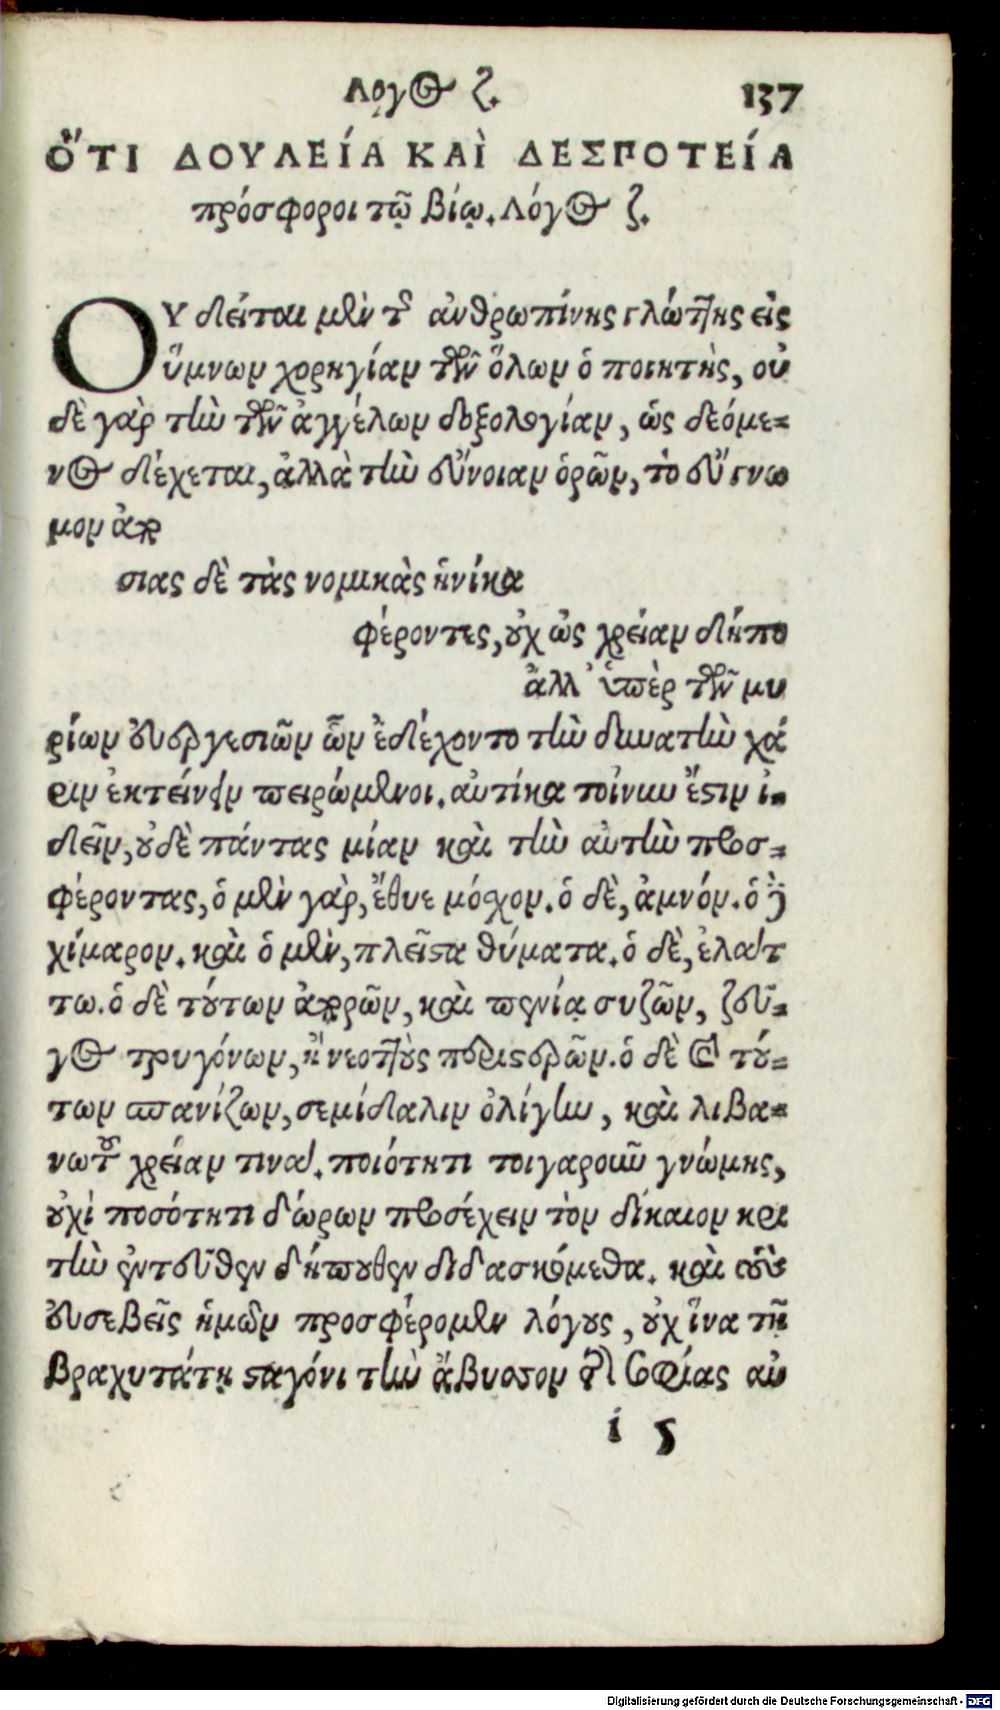 Λογος ζ. 137
ὍΤΙ ΔΟΥΛΕΊΑ ΚΑῚ ΔΕΣΠΟΤΕΊΑ
πρόσφοροι τῷ βίῳ. Λόγος ζ.
ΟΥ δεῖται μὲν τῆς ἀνθρωπίνης γλώττης εἰς
ὕμνων χορηγίαν τῶν ὅλων ὁ ποιητὴς, οὐ
δὲ γὰρ τὴν τῶν ἀγγέλων δοξολογίαν, ὡς δεόμε-
νος δέχεται, ἀλλὰ τὴν εὔνοιαν ὁρῶν, τὸ εὔγνω
μον ἀπο
σιας δὲ τὰς νομικὰς ἡνίκα
φέροντες, οὐχ ὡς χρείαν δήπο
ἀλλ' ὑπὲρ τῶν μυ
ρίων εὐεργεσιῶν ὧν ἐδέχοντο τὴν δυνατὴν χά
ριν ἐκτείνειν πειρώμενοι. αὐτίκα τοίνυν ἔστιν ἰ-
δεῖν, οὐδὲ πάντας μίαν καὶ τὴν αὐτὴν προσ-
φέροντας, ὁ μὲν γὰρ, ἔθυε μόσχον. ὁ δὲ, ἀμνόν. ὁ δὲ
χίμαρον. καὶ ὁ μὲν, πλεῖστα θύματα. ὁ δὲ, ἐλάτ
τω. ὁ δὲ τούτων ἀπορῶν, καὶ πενίᾳ συζῶν, ζεῦ-
γος τρυγόνων, ἢ νεοττοὺς περιστερῶν. ὁ δὲ καὶ τού-
των σπανίζων, σεμίδαλιν ὀλίγην, καὶ λιβα-
νωτοῦ χρείαν τινά. ποιότητι τοιγαροῦν γνώμης,
οὐχὶ ποσότητι δώρων προσέχειν τὸν δίκαιον κρι
τὴν ἐντεῦθεν δήπουθεν διδασκόμεθα. καὶ οὖν
εὐσεβεῖς ἡμῶν προσφέρομεν λόγους, οὐχ ἵνα τῇ
βραχυτάτῃ σταγόνι τὴν ἄβυσσον τῆς σοφίας αὐ
i 5
Digitalisierung gefördert durch die Deutsche Forschungsgemeinschaft - DFG